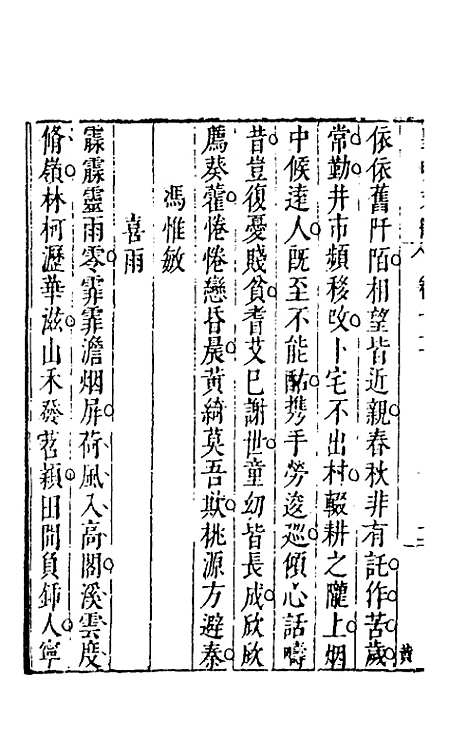 依依舊阡陌相望皆近親春秋非有託作苦歲
常勤井市頻移改卜宅不出村輟耕之隴上烟
中候逹人既至不能酤携手勞逡巡傾心話疇
昔豈復憂賤貧耆艾巳謝世童幼皆長成欣欣
薦葵藿惓惓戀昏晨黃綺莫吾欺桃源方避秦
馮惟敏
喜雨
霡霡靈雨零霏霏澹烟屏荷風入高閣溪雲度
脩嶺林柯瀝華滋山禾發苕穎田間負鍤人寧
黄